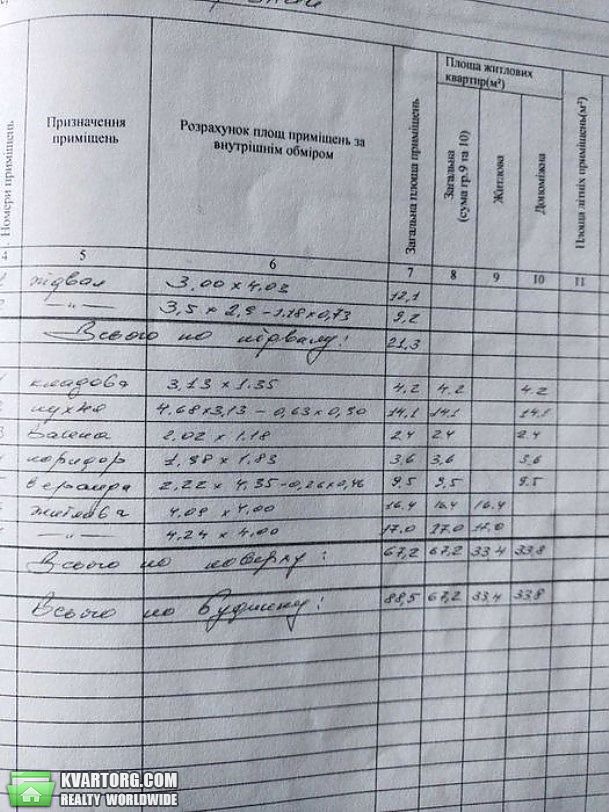 Номери приміщень
Призначення приміщень
Розрахунок площ приміщень за внутрішнім обміром
Загальна площа приміщень
Площа житлових квартир(м²)
Загальна (сума гр.9 та 10)
Житлова
Допоміжна
Площа літніх приміщень(м²)
4 5 6 7 8 9 10 11
підвал 3,00 x 4.03 12,1
—"— 3,5 x 2,9 – 1.18 x 0,73 9,2
Всього по підвалу: 21,3
кладова 3,13 x 1.35 4.2 4.2 4.2
2 кухня 4.68x3,13 – 0,63x0,50 14,1 14,1 14,1
3 ванна 2.02 x 1.18 2.4 2.4 2.4
коридор 1,98 x 1.83 3,6 3,6 3.6
веранда 2,22 x 4.35 – 0,26x0,46 9.5 9,5 9.5
житлова 4.09 x 4.00 16.4 16.4 16.4
—"— 4.24 x 4.00 17.0 17.0 17.0
Всього по поверху: 67,2 67,2 33.4 33.8
Всього по будинку: 88,5 67,2 33.4 33.8
KVARTORG.COM
REALTY WORLDWIDE